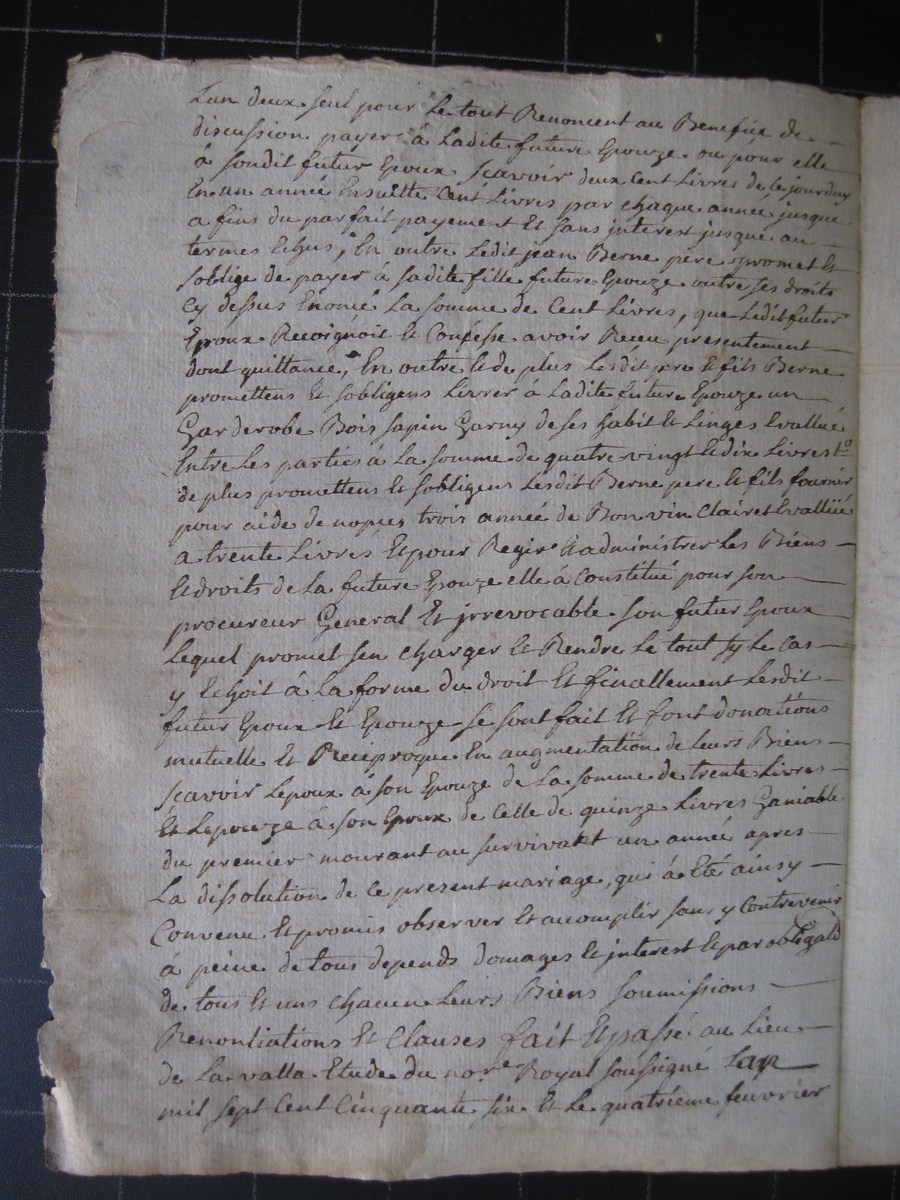 Lun deux seul pour Le tout Renoncent au Benefice de
discussion payer à Ladite future Epouze ou pour elle
à sondit futur Epoux Scavoir deux Cent Livres de Ce jourduy
En un année Ensuitte Cent Livres par chaque année jusque
a fins du parfait payement Et sans interest jusque au
termes Echus, En outre Ledit jean Berne pere promet Et
soblige de payer à sadite fille future Epouze outre ses droits
Cy dessus Enoncé La somme de Cent Livres, que Ledit futur
Epoux Recoignoit Et Confesse avoir Receu presentement
dont quittance, En outre Et de plus Lesdit pere Et fils Berne
promettens Et sobligens Livrer à Ladite future Epouze un
Garderobe Bois sapin Garny de ses habit Et Linges Evallué
Entre Les parties à La somme de quatre vingt Et dix Livres
de plus promettens Et sobligens Lesdit Berne pere Et fils fournir
pour aide de nopces trois année de Bon vin Clairet Evallüé
a trente Livres, Et pour Regir Et administrer Les Biens
Et droits de La future Epouze elle à Constitué pour son
procureur General Et jrrevocable son futur Epoux
Lequel promet sen charger Et Rendre Le tout sy Le Cas
y Echoit à La forme du droit Et finallement Lesdit
futur Epoux Et Epouze se sont fait Et font donations
mutuelle Et Reciproque En augmentation de Leurs Biens
Scavoir Lepoux à son Epouze de La somme de trente Livres
Et Lepouze à son Epoux de Celle de quinze Livres Ganiable
du premier mourant au survivant un année apres
La dissolution de Ce present mariage, qui à Eté ainsy
Convenu Et promis observer Et acomplir sans y Contrevenir
à peine de tous depends domages Et interest Et par obligation
de tous Et uns chacun Leurs Biens soumissions
Renontiations Et Clauses fait Et passé au Lieu
de La valla Etude du no.re Royal soussigné Lan
mil sept Cent Cinquante six Et Le quatrieme feuvrier